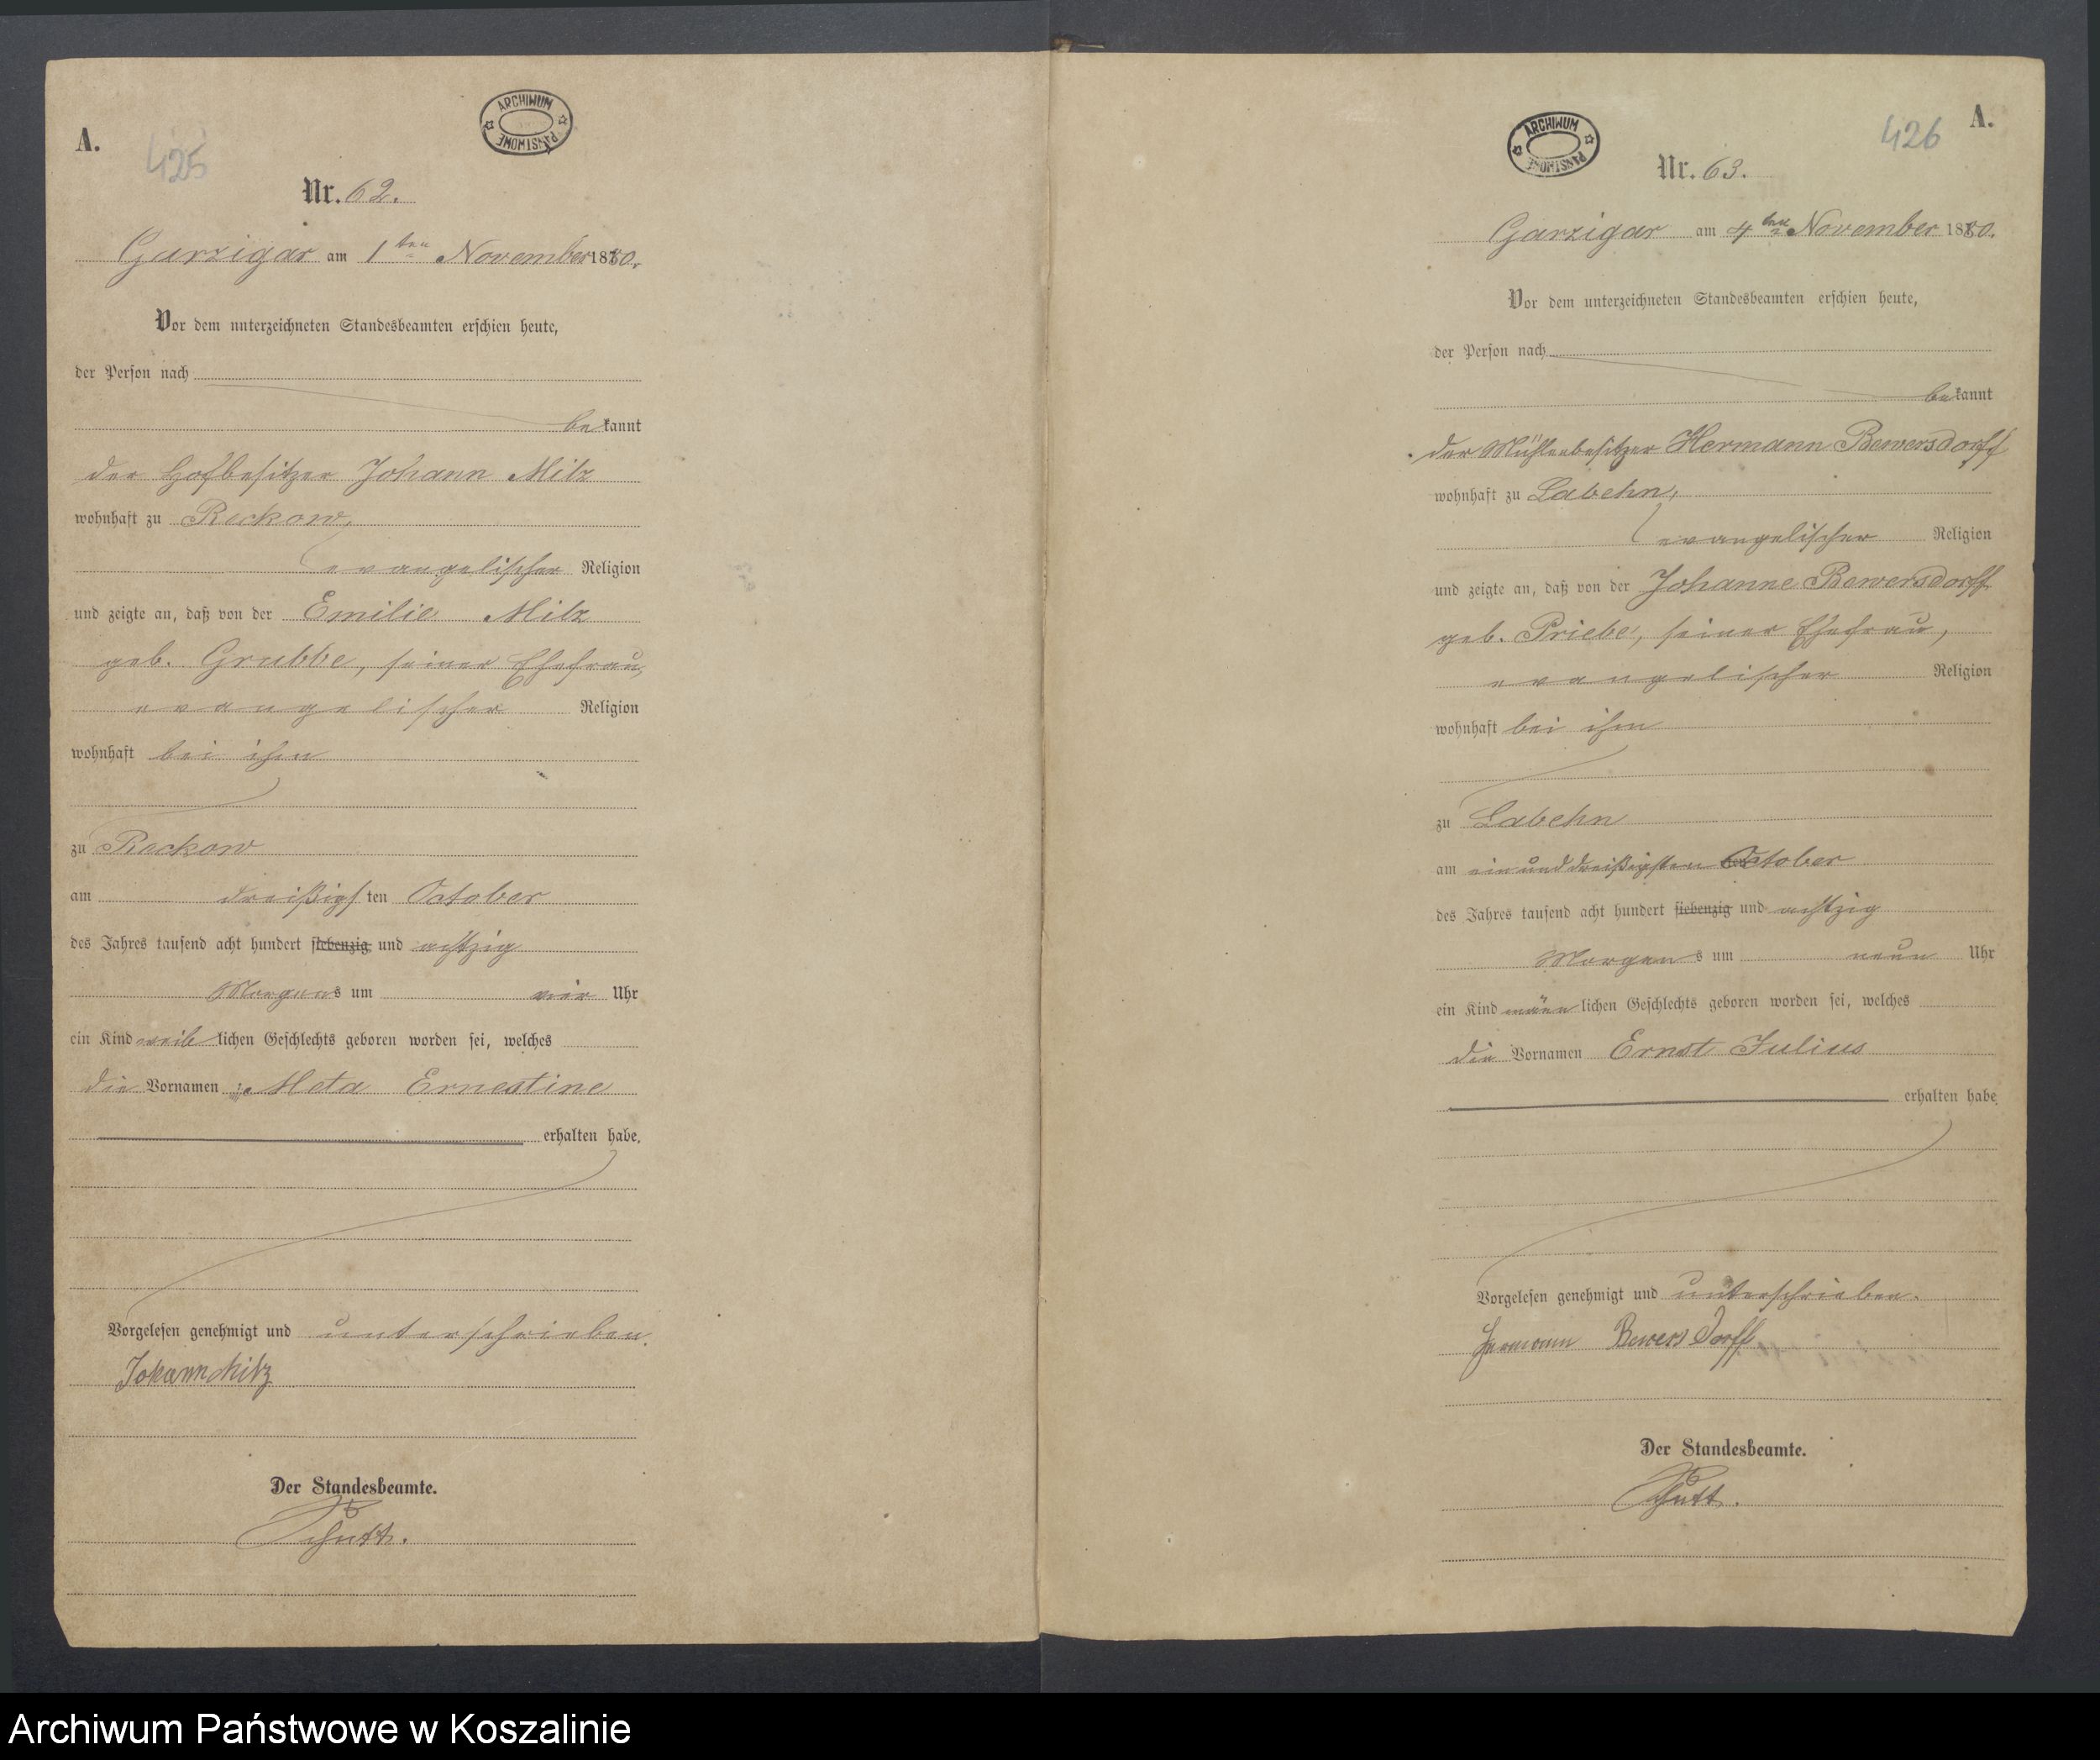 A.
425
ARCHIWUM PAŃSTWOWE
Nr. 62.
Garzigar am 1ten November 1880.
Vor dem unterzeichneten Standesbeamten erschien heute,
der Person nach
bekannt
der Hofbesitzer Johann Milz
wohnhaft zu Reckow,
evangelischer Religion
und zeigte an, daß von der Emilie Milz
geb. Grubbe, seiner Ehefrau,
evangelischer Religion
wohnhaft bei ihm
zu Reckow
am dreißigsten October
des Jahres tausend acht hundert siebenzig und achtzig
Morgens um vier Uhr
ein Kind weiblichen Geschlechts geboren worden sei, welches
die Vornamen Meta Ernestine
erhalten habe.
Vorgelesen genehmigt und unterschrieben.
Johann Milz
Der Standesbeamte.
A.
426
ARCHIWUM PAŃSTWOWE
Nr. 63.
Garzigar am 4ten November 1880.
Vor dem unterzeichneten Standesbeamten erschien heute,
der Person nach
bekannt
der Mühlenbesitzer Hermann Bewersdorff
wohnhaft zu Labehn,
evangelischer Religion
und zeigte an, daß von der Johanne Bewersdorff
geb. Priebe, seiner Ehefrau,
evangelischer Religion
wohnhaft bei ihm
zu Labehn
am ein und dreißigsten October
des Jahres tausend acht hundert siebenzig und achtzig
Morgens um neun Uhr
ein Kind männlichen Geschlechts geboren worden sei, welches
die Vornamen Ernst Julius
erhalten habe.
Vorgelesen genehmigt und unterschrieben.
Hermann Bewersdorff
Der Standesbeamte.
Archiwum Państwowe w Koszalinie